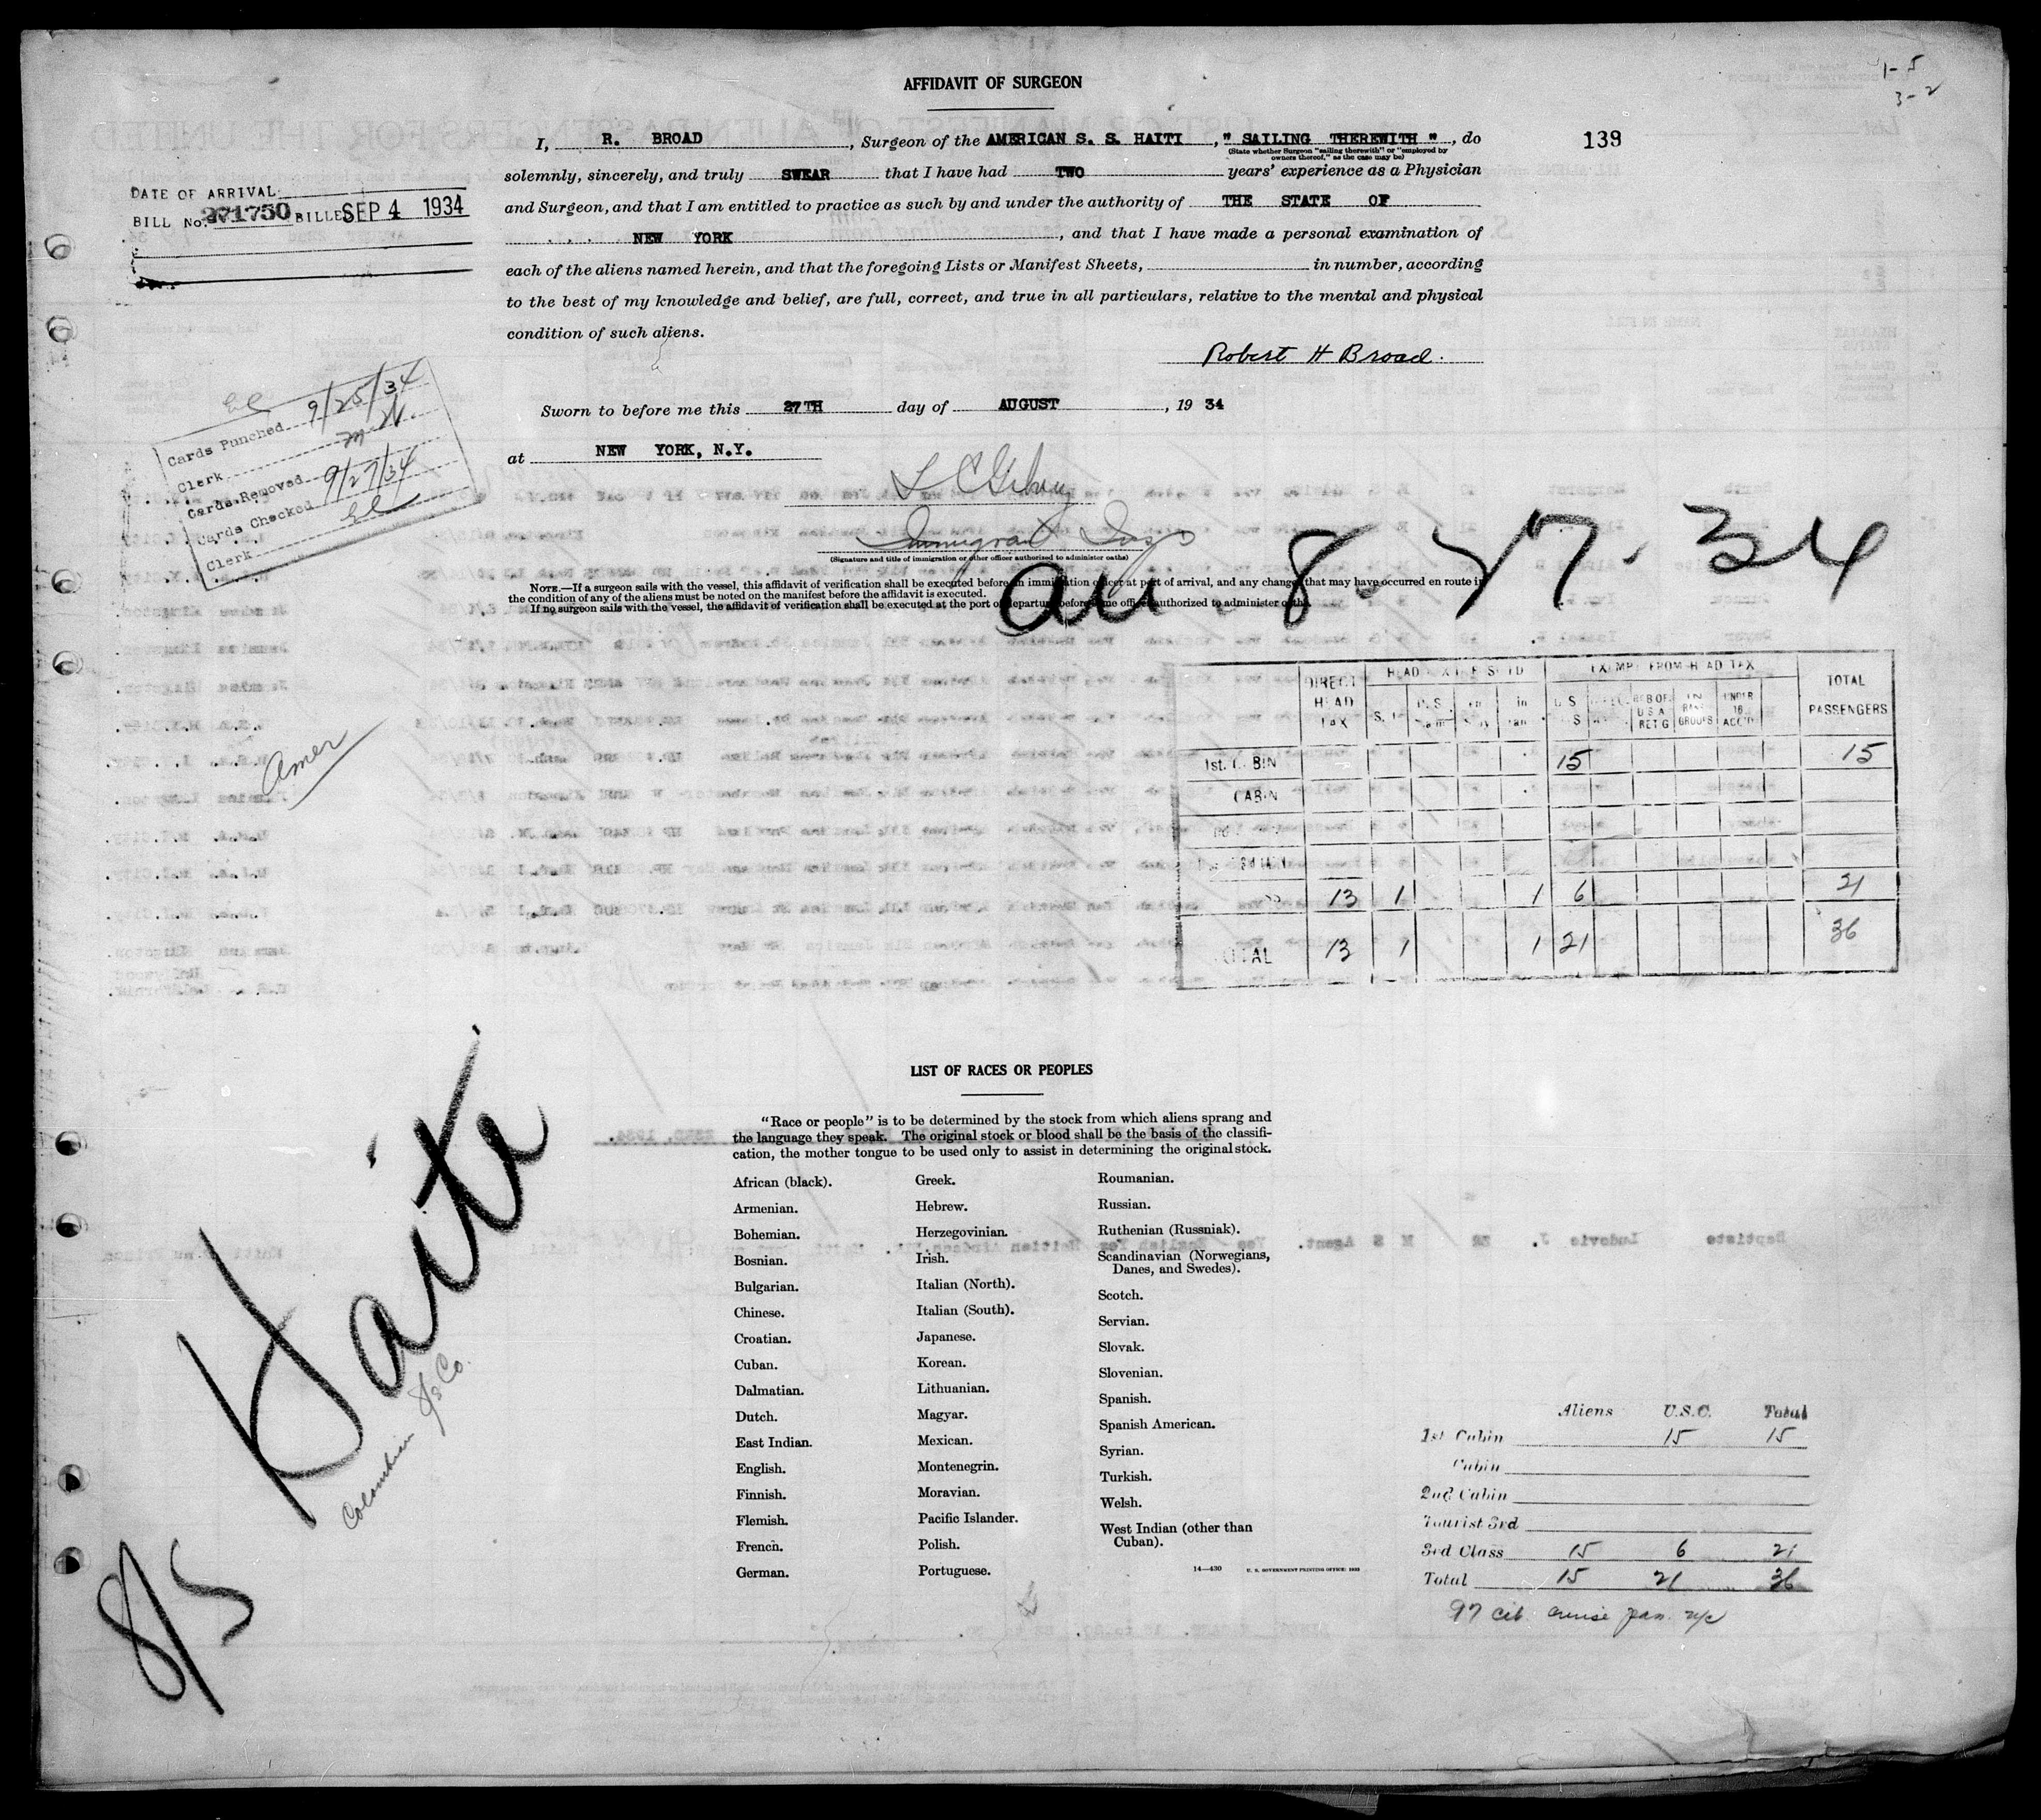 1-5
3-2
AFFIDAVIT OF SURGEON
I, R. BROAD, Surgeon of the AMERICAN S. S. HAITI, " SAILING THEREWITH ", do
(State whether Surgeon "sailing therewith" or "employed by
owners thereof," as the case may be)
139
solemnly, sincerely, and truly SWEAR that I have had TWO years' experience as a Physician
and Surgeon, and that I am entitled to practice as such by and under the authority of THE STATE OF
NEW YORK, and that I have made a personal examination of
each of the aliens named herein, and that the foregoing Lists or Manifest Sheets, in number, according
to the best of my knowledge and belief, are full, correct, and true in all particulars, relative to the mental and physical
condition of such aliens.
Robert H Broad.
DATE OF ARRIVAL
BILL No. 271750 BILLED SEP 4 1934
Sworn to before me this 27TH day of AUGUST, 19 34
at NEW YORK, N.Y.
Immigrant Insp
(Signature and title of immigration or other officer authorized to administer oaths)
Cards Punched 9/25/34
Clerk
Cards Removed
Cards Checked 9/27/34
Clerk
NOTE.—If a surgeon sails with the vessel, this affidavit of verification shall be executed before an immigration officer at port of arrival, and any changes that may have occurred en route in
the condition of any of the aliens must be noted on the manifest before the affidavit is executed.
If no surgeon sails with the vessel, the affidavit of verification shall be executed at the port of departure before some officer authorized to administer oaths.
8-27-34
Amer
DIRECT HEAD TAX
EXEMPT FROM HEAD TAX
TOTAL PASSENGERS
1st. CABIN 15 15
CABIN
13 1 1 6 21
TOTAL 13 1 1 21 36
LIST OF RACES OR PEOPLES
"Race or people" is to be determined by the stock from which aliens sprang and
the language they speak. The original stock or blood shall be the basis of the classifi-
cation, the mother tongue to be used only to assist in determining the original stock.
African (black).
Armenian.
Bohemian.
Bosnian.
Bulgarian.
Chinese.
Croatian.
Cuban.
Dalmatian.
Dutch.
East Indian.
English.
Finnish.
Flemish.
French.
German.
Greek.
Hebrew.
Herzegovinian.
Irish.
Italian (North).
Italian (South).
Japanese.
Korean.
Lithuanian.
Magyar.
Mexican.
Montenegrin.
Moravian.
Pacific Islander.
Polish.
Portuguese.
Roumanian.
Russian.
Ruthenian (Russniak).
Scandinavian (Norwegians,
Danes, and Swedes).
Scotch.
Servian.
Slovak.
Slovenian.
Spanish.
Spanish American.
Syrian.
Turkish.
Welsh.
West Indian (other than
Cuban).
14—430 U. S. GOVERNMENT PRINTING OFFICE: 1933
Haiti
Columbian S/s Co.
8/5
Aliens U.S.C. Total
1st Cabin 15 15
Cabin
2nd Cabin
Tourist 3rd
3rd Class 15 6 21
Total 15 21 36
97 cit. cruise pas. n/c